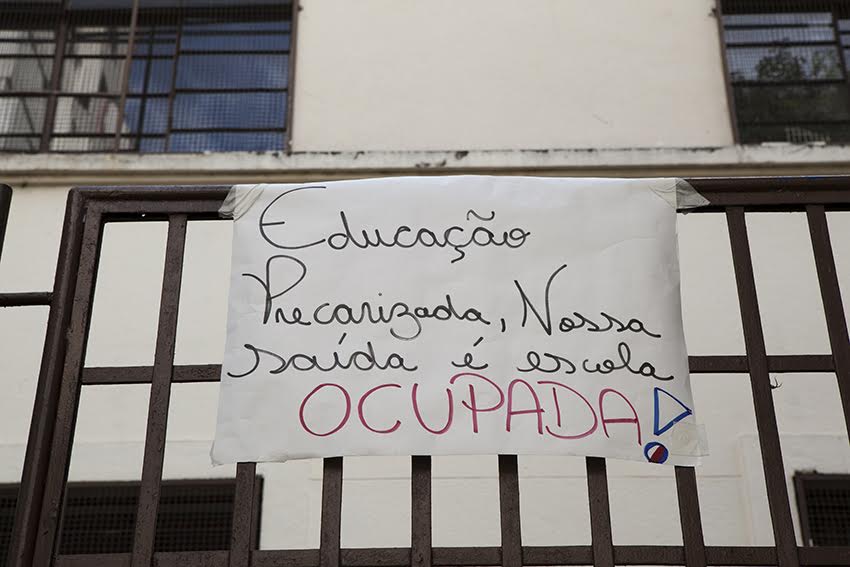 Educação
Precarizada, Nossa
saída é escola
OCUPADA!